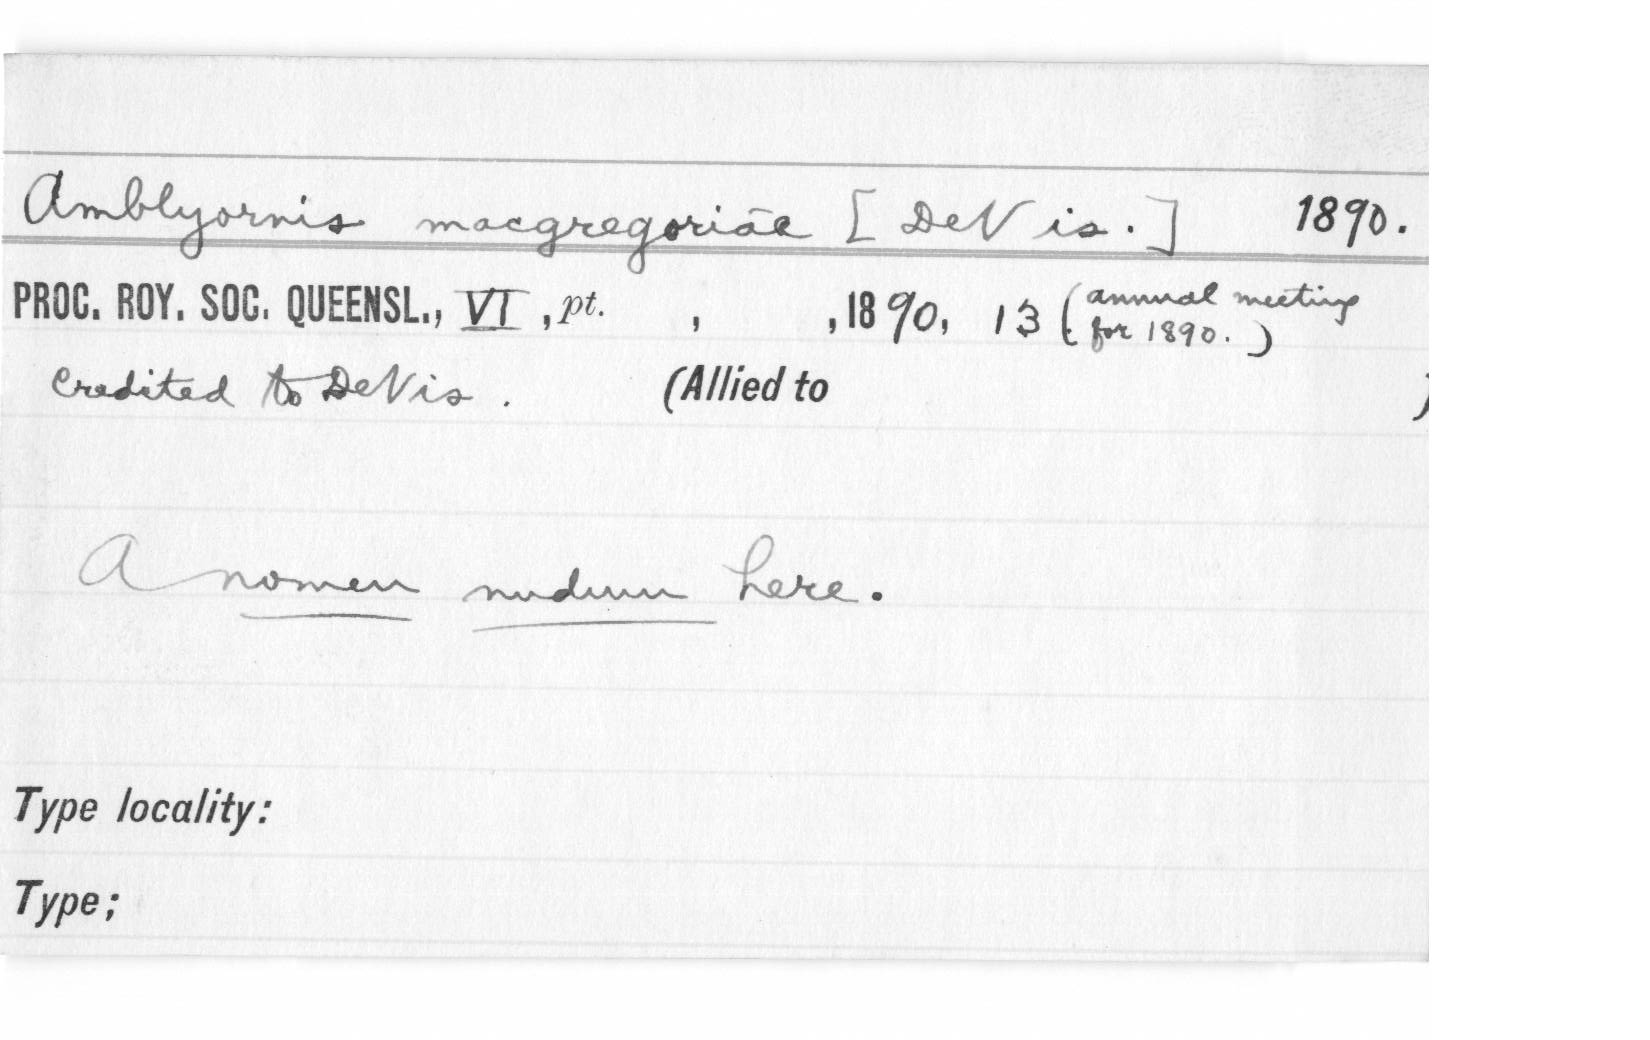 Amblyornis macgregoriae [DeVis.] 1890.
PROC. ROY. SOC. QUEENSL., VI, pt. , , 1890, 13 (annual meeting
for 1890.)
Credited to DeVis. (Allied to )
A nomen nudum here.
Type locality:
Type;